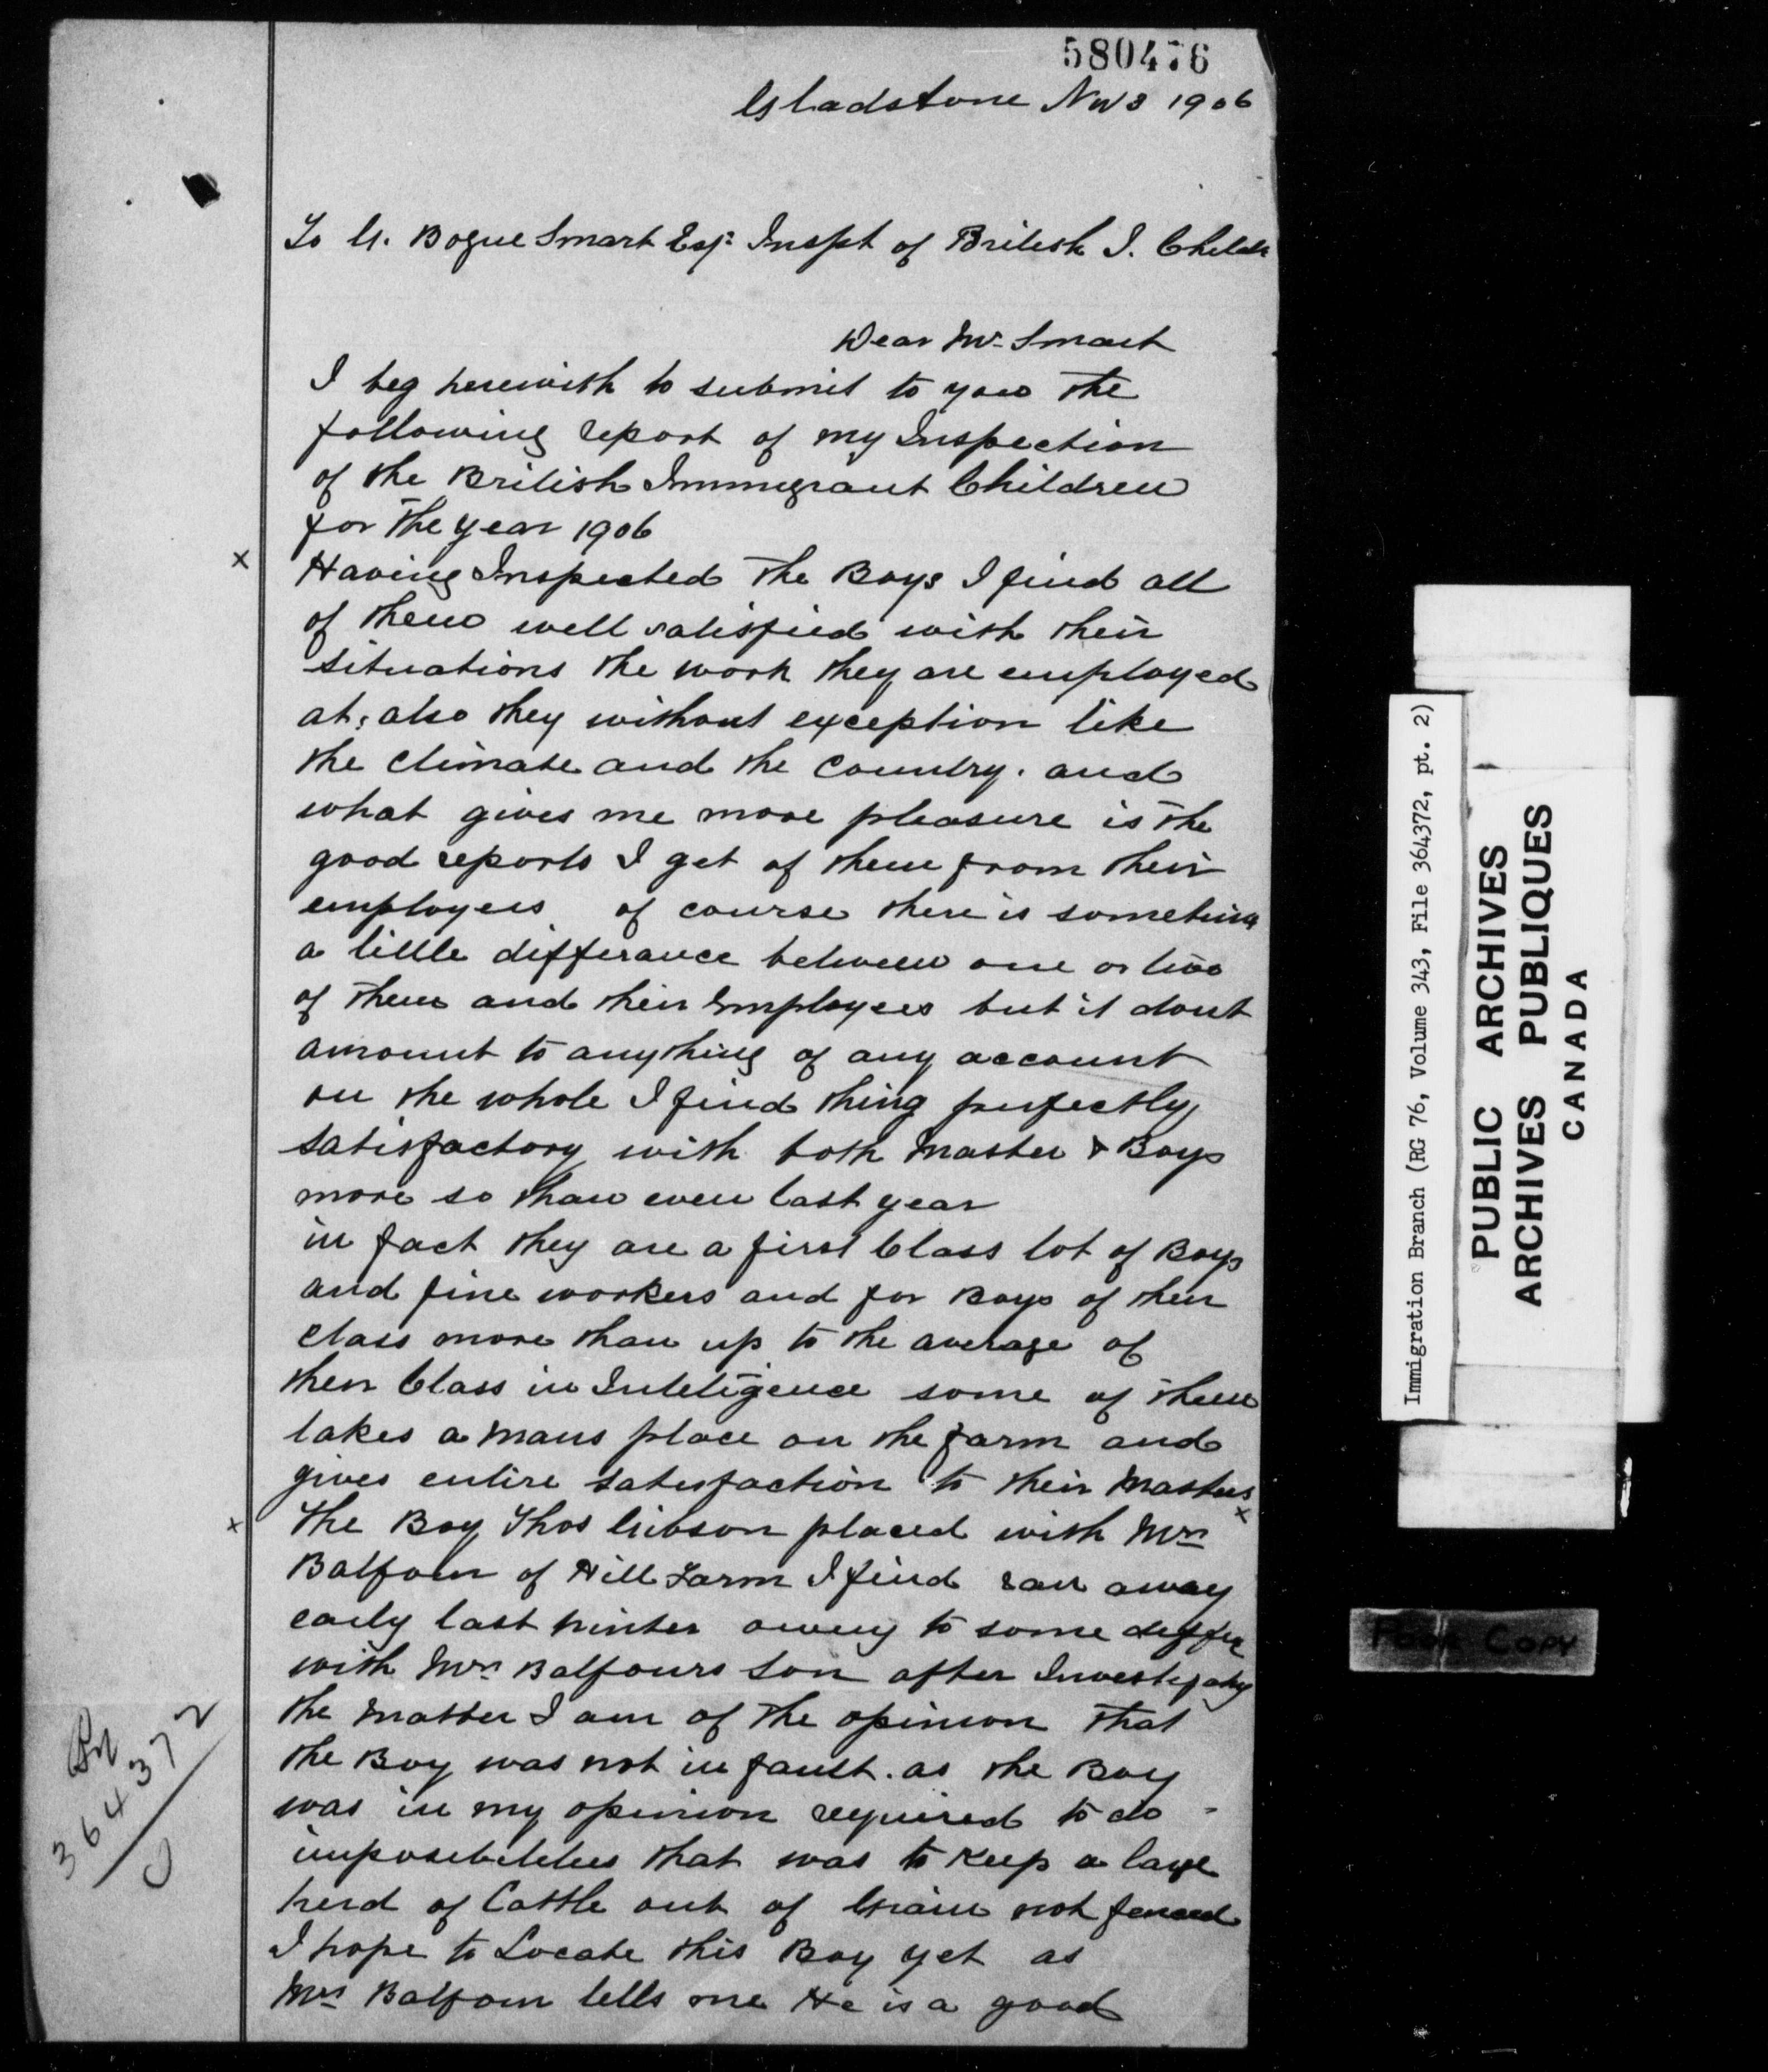 580476
Gladstone Nov 3 1906
To G. Bogue Smart Esqr Inspt of British I. Childr
Dear Mr Smart
I beg herewith to submit to you the
following report of my Inspection
of the British Immegrant Children
for the year 1906
x Having Inspected the Boys I find all
of them well satisfied with their
situations the work they are employed
at, also they without exception like
the climate and the country. and
what gives me more pleasure is the
good reports I get of them from their
employers of course there is sometimes
a little differance between one or two
of them and their Employers but it dont
amount to anything of any account
on the whole I find thing perfectly
satisfactory with both Master & Boys
more so than even last year
in fact they are a first Class lot of Boys
and fine workers and for Boys of their
class more than up to the average of
their Class in Inteligence some of them
takes a mans place on the farm and
gives entire satisfaction to their Masters
x The Boy Thos Gibson placed with Mrs x
Balfour of Hill Farm I find ran away
early last winter owing to some differ
with Mrs Balfours son after Investigatig
the matter I am of the opinion that
the Boy was not in fault. as the Boy
was in my opinion required to do
imposibilities that was to keep a large
herd of Cattle out of Grain not fenced
I hope to Locate this Boy yet as
Mrs Balfour tells me He is a good
364372
Immigration Branch (RG 76, Volume 343, File 364372, pt. 2)
PUBLIC ARCHIVES
ARCHIVES PUBLIQUES
CANADA
Poor Copy